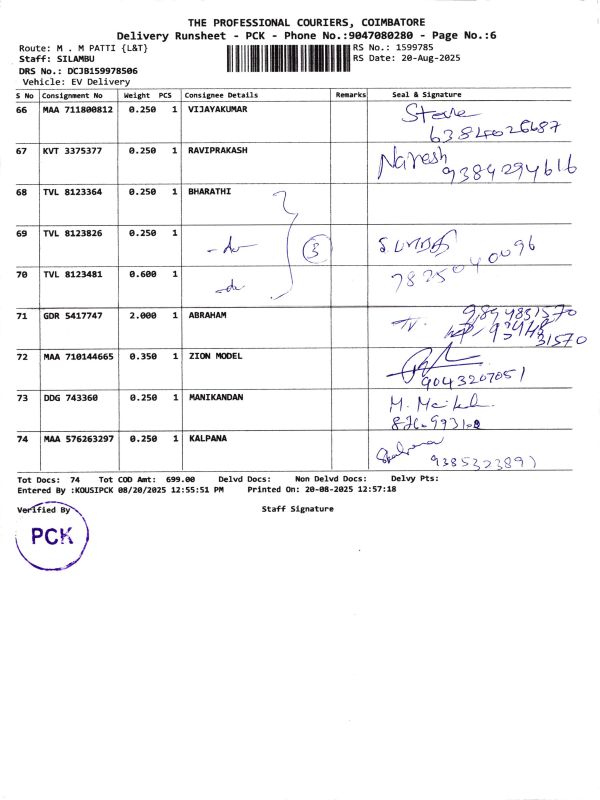 THE PROFESSIONAL COURIERS, COIMBATORE
Delivery Runsheet - PCK - Phone No.:9047080280 - Page No.:6
Route: M . M PATTI {L&T} RS No.: 1599785
Staff: SILAMBU RS Date: 20-Aug-2025
DRS No.: DCJB159978506
Vehicle: EV Delivery
S No Consignment No Weight PCS Consignee Details Remarks Seal & Signature
66 MAA 711800812 0.250 1 VIJAYAKUMAR
67 KVT 3375377 0.250 1 RAVIPRAKASH Naresh 9384294616
68 TVL 8123364 0.250 1 BHARATHI
69 TVL 8123826 0.250 1 -do- 3
70 TVL 8123481 0.600 1 -do- 7825040096
71 GDR 5417747 2.000 1 ABRAHAM
72 MAA 710144665 0.350 1 ZION MODEL 9043207051
73 DDG 743360 0.250 1 MANIKANDAN
74 MAA 576263297 0.250 1 KALPANA
Tot Docs: 74 Tot COD Amt: 699.00 Delvd Docs: Non Delvd Docs: Delvy Pts:
Entered By :KOUSIPCK 08/20/2025 12:55:51 PM Printed On: 20-08-2025 12:57:18
Verified By Staff Signature
PCK